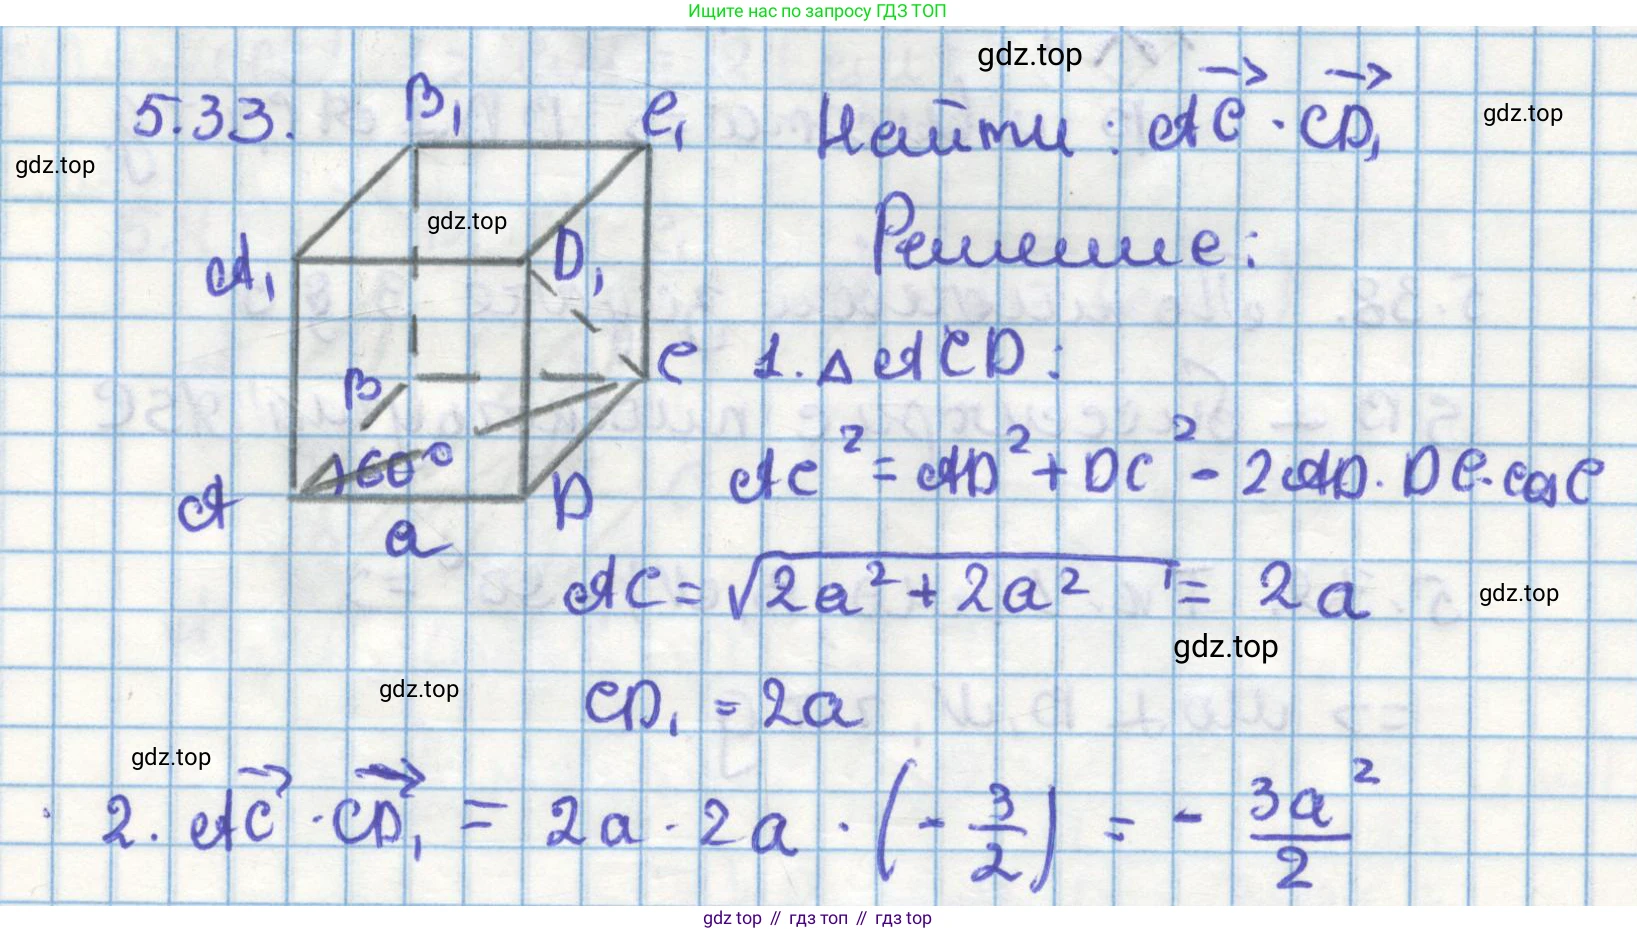 Ищите нас по запросу ГДЗ ТОП
gdz.top
5.33.
B₁
C₁
Найти: AC · CD₁
gdz.top
gdz.top
gdz.top
Решение:
A₁
D₁
B
C
1. △ ACD:
60°
A
D
a
AC² = AD² + DC² - 2AD · DC · cos C
AC = √2a² + 2a² = 2a
gdz.top
gdz.top
gdz.top
CD₁ = 2a
gdz.top
2. AC · CD₁ = 2a · 2a · (- 3/2) = - 3a²/2
gdz.top // гдз топ // гдз top